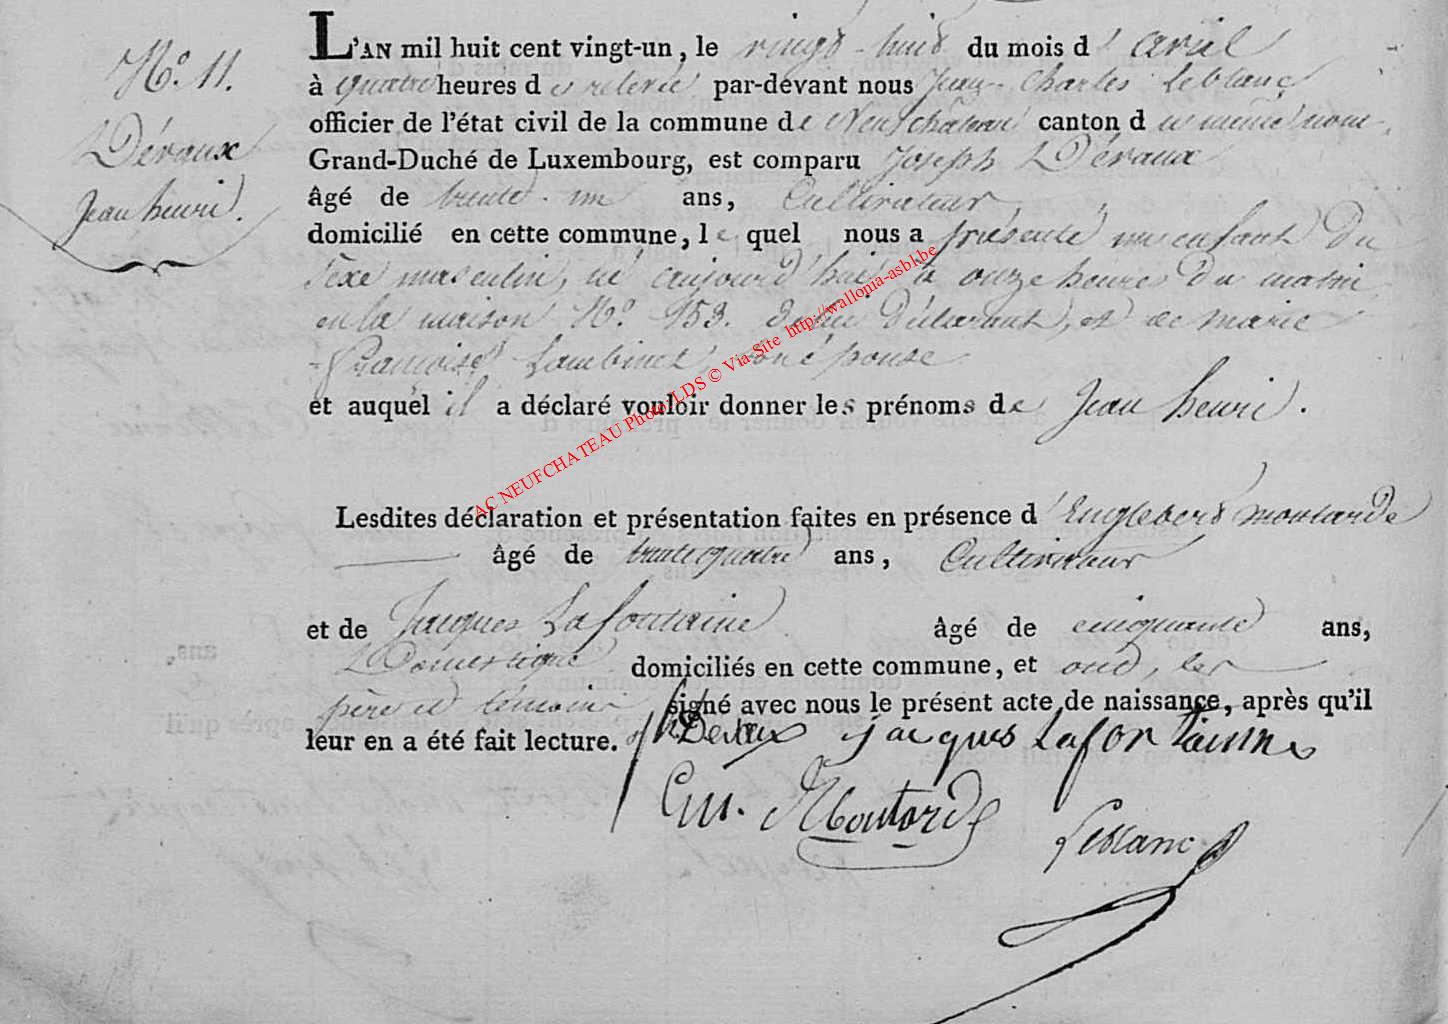 N.° 11.
Dévaux
Jean henri.
L'AN mil huit cent vingt-un, le vingt-huit du mois d'avril
à quatre heures de relevée par-devant nous Jean-Charles Leblanc
officier de l'état civil de la commune de Neufchâteau canton du même nom,
Grand-Duché de Luxembourg, est comparu Joseph Dévaux
âgé de trente-un ans, Cultivateur
domicilié en cette commune, lequel nous a présenté un enfant du
sexe masculin, né aujourd'hui à onze heures du matin
en la maison N.° 153. de lui Déclarant, et de marie
françoise Lambinet, son épouse
et auquel il a déclaré vouloir donner les prénoms de Jean henri.
Lesdites déclaration et présentation faites en présence d'Englebert moutarde
âgé de trente quatre ans, Cultivateur
et de Jacques Lafontaine âgé de cinquante ans,
Domestique domiciliés en cette commune, et ont, les
père et témoins signé avec nous le présent acte de naissance, après qu'il
leur en a été fait lecture.
Devaux jacques Lafontainne
En. Moutarde
Leblanc
AC NEUFCHATEAU Photo LDS © Via-Site http://wallonia-asbl.be